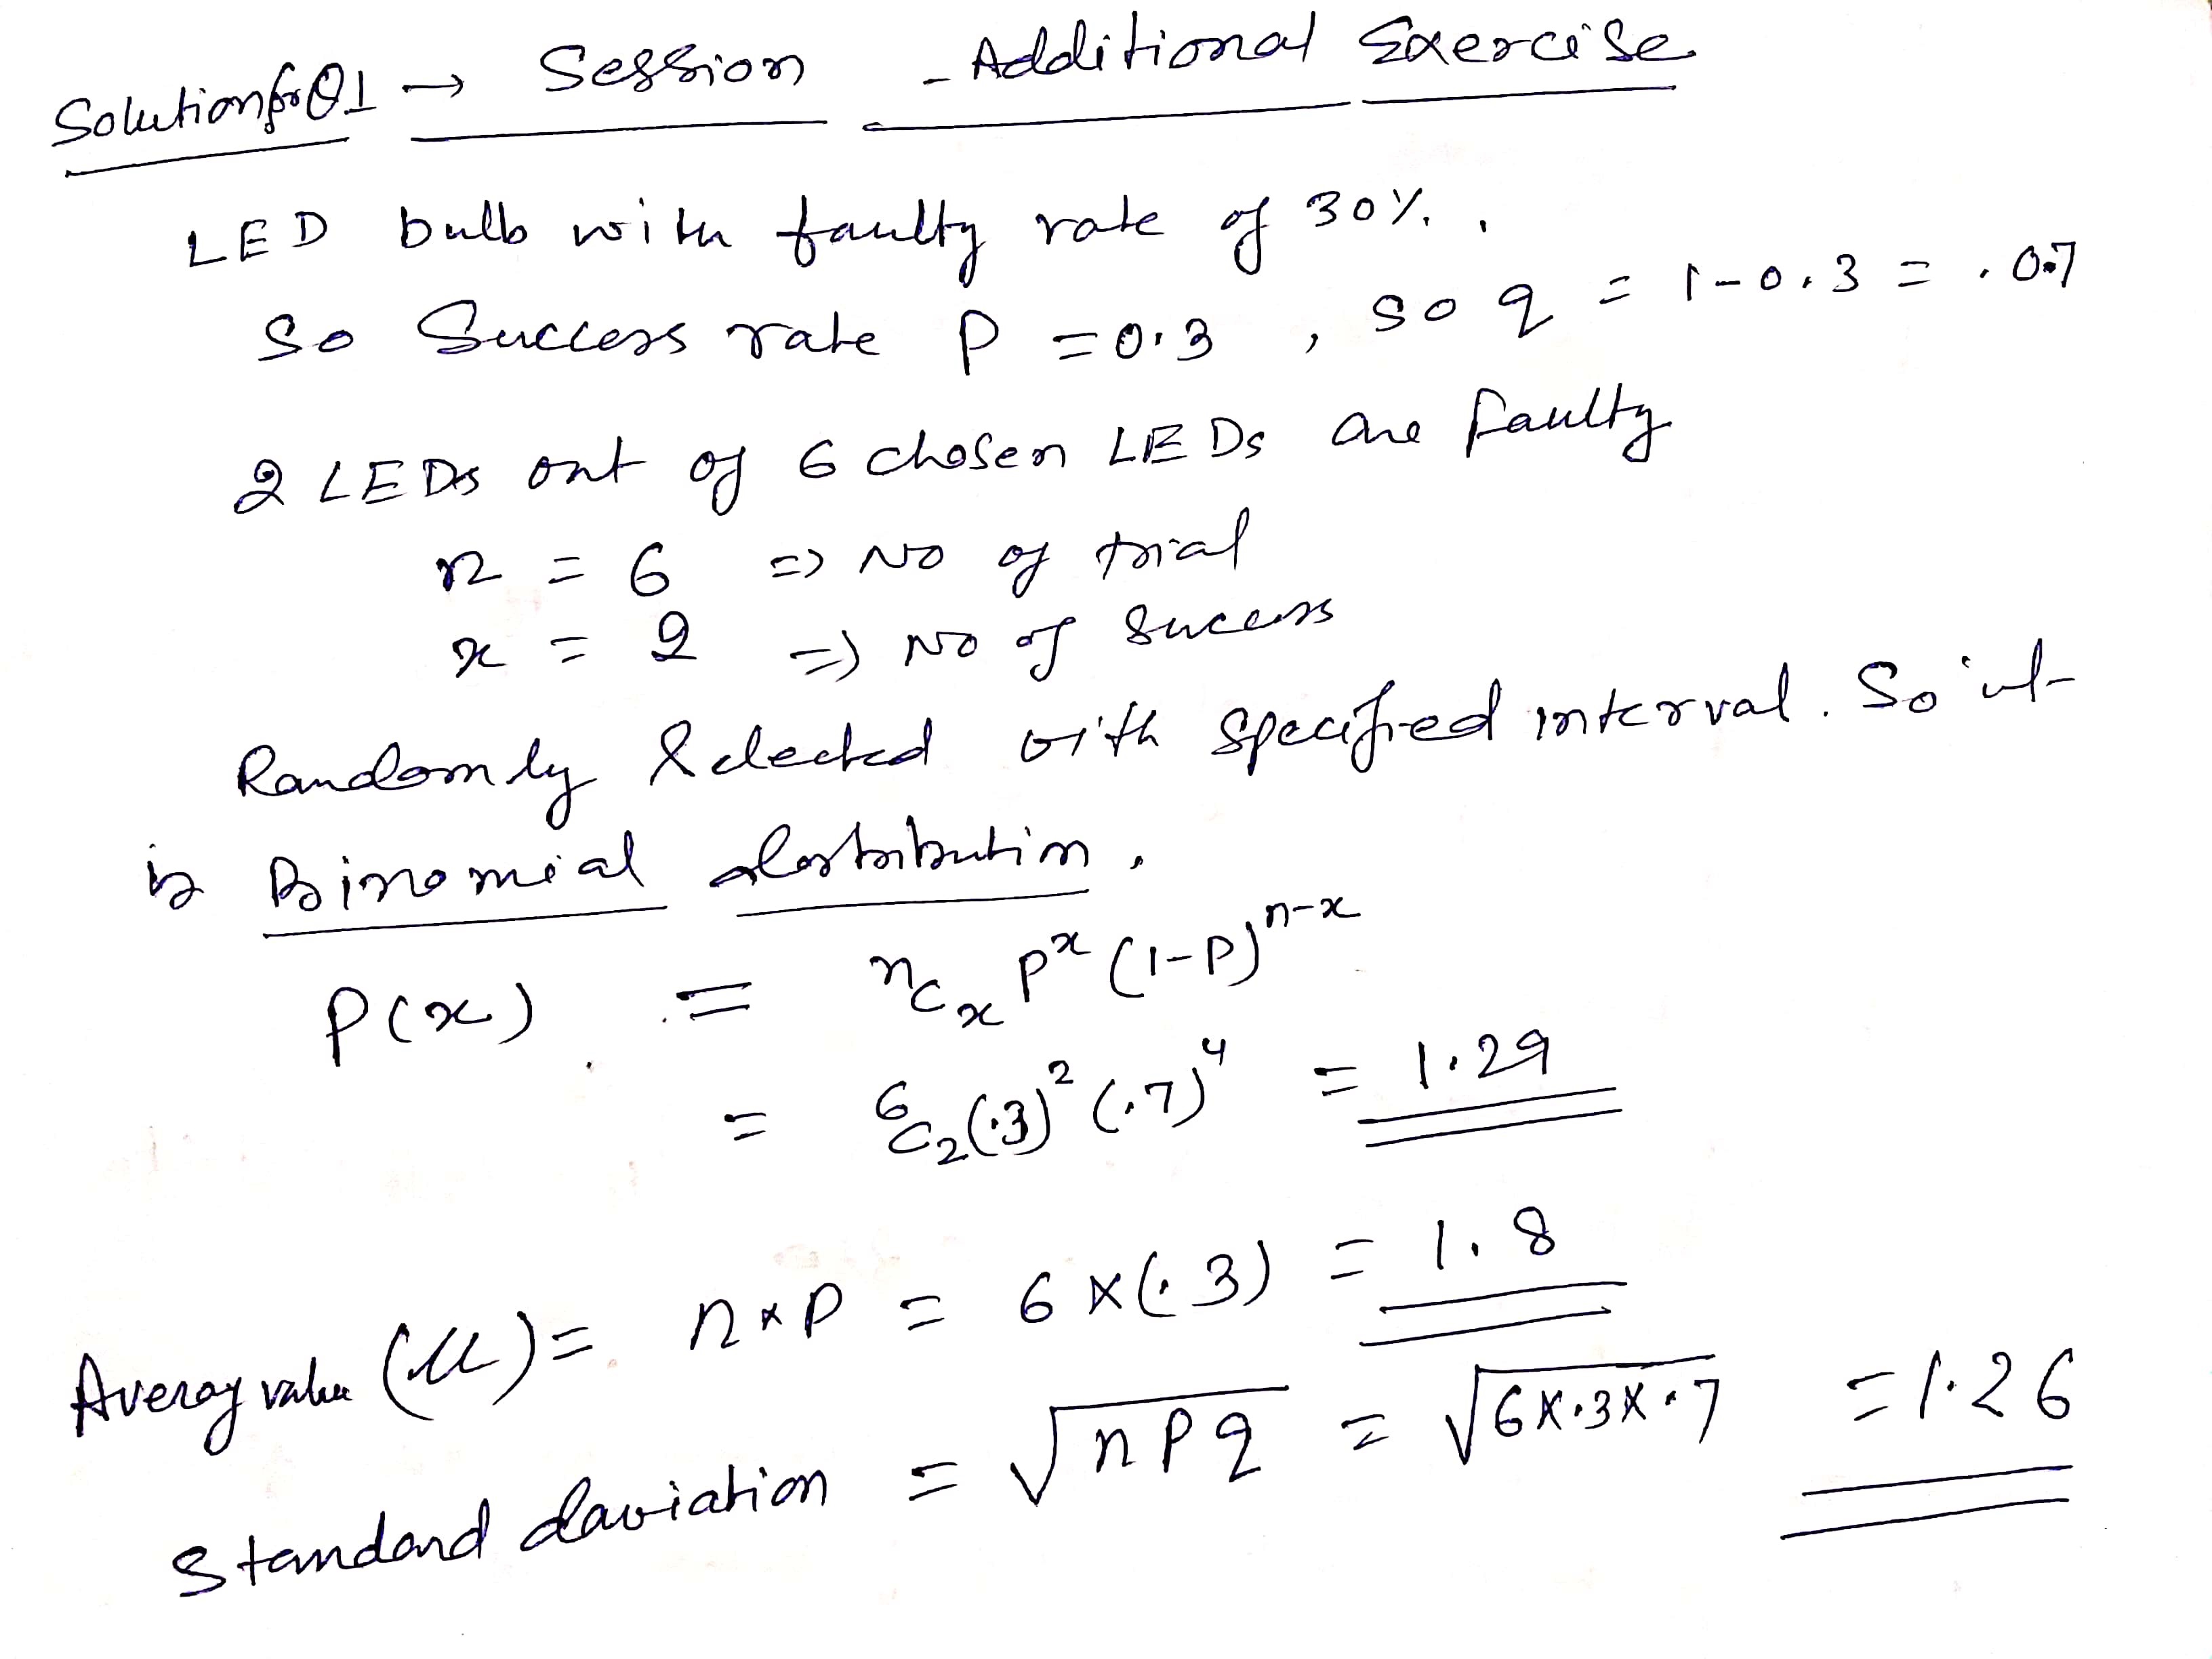 Solution for Q1 → Session - Additional Exercise
LED bulb with faulty rate of 30%.
So Success rate P = 0.3 , so q = 1-0.3 = .0.7
2 LEDs out of 6 chosen LEDs are faulty
n = 6 => No of trial
x = 2 => No of sucess
Randomly Selected with specified interval. So it
is Binomial distribution.
P(x) = nCx p^x (1-P)^n-x
= 6C2 (.3)^2 (.7)^4 = 1.29
Averag value (μ) = n×p = 6×(.3) = 1.8
Standard daviation = √npq = √6×.3×.7 = 1.26